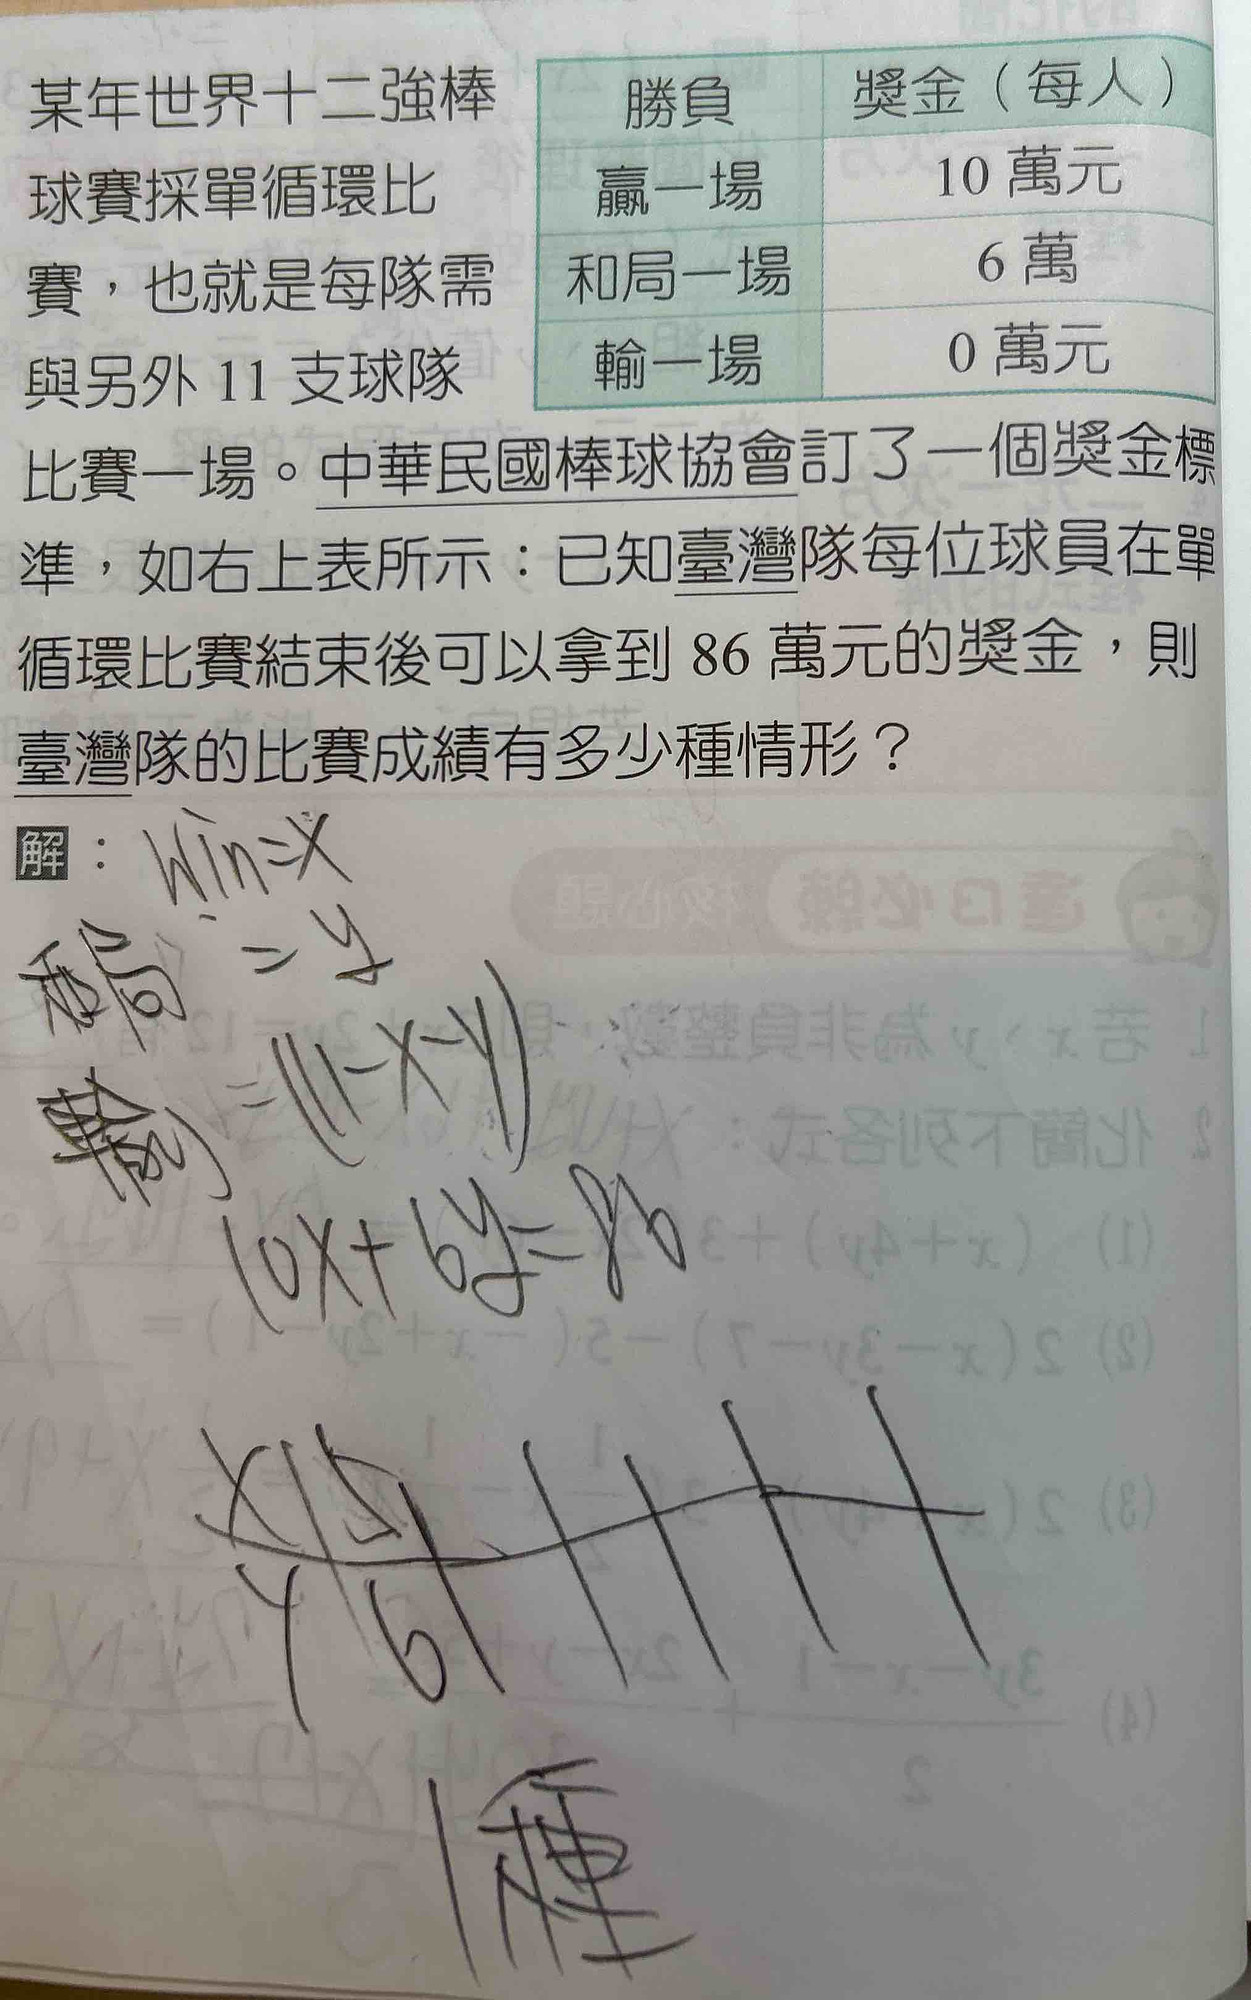 某年世界十二強棒
球賽採單循環比
賽，也就是每隊需
與另外 11 支球隊
勝負 獎金（每人）
贏一場 10 萬元
和局一場 6 萬
輸一場 0 萬元
比賽一場。中華民國棒球協會訂了一個獎金標
準，如右上表所示：已知臺灣隊每位球員在單
循環比賽結束後可以拿到 86 萬元的獎金，則
臺灣隊的比賽成績有多少種情形？
解：Win=x
和局 = y
輸 = (11-x-y)
10x+6y=86
x 5
y 6
1種